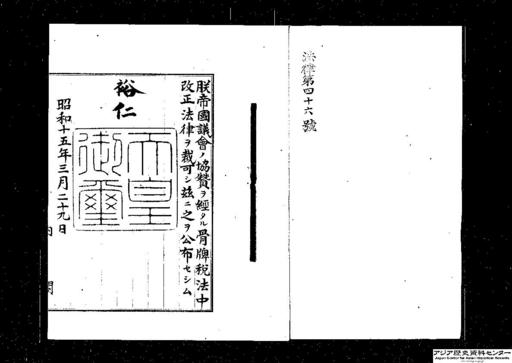 法律第四十六號
朕帝國議會ノ協贊ヲ經タル骨牌税法中
改正法律ヲ裁可シ茲ニ之ヲ公布セシム
裕仁
天皇
御璽
昭和十五年三月二十九日
内閣
アジア歴史資料センター
Japan Center for Asian Historical Records